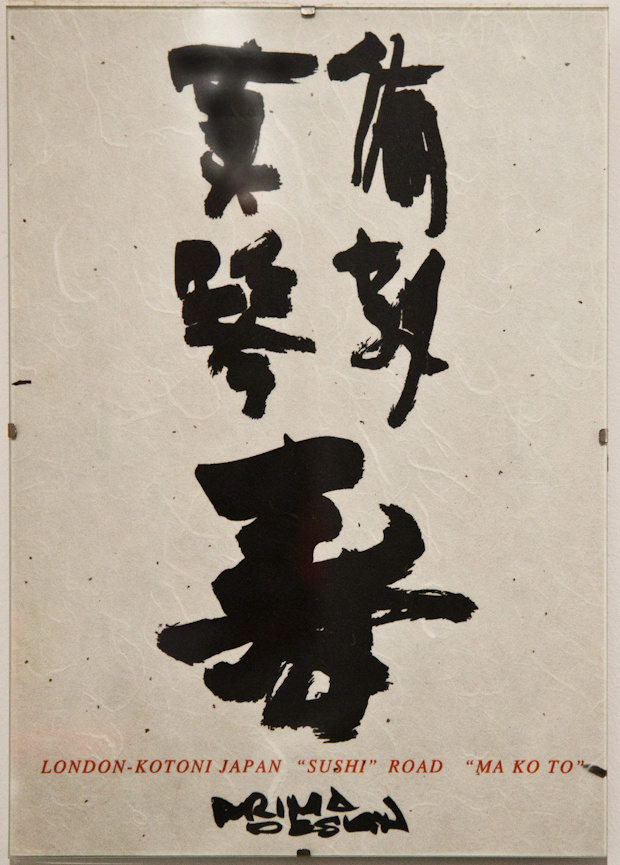 倫敦
真琴
寿
LONDON-KOTONI JAPAN “SUSHI” ROAD “MA KO TO”
PRIMA
DESIGN